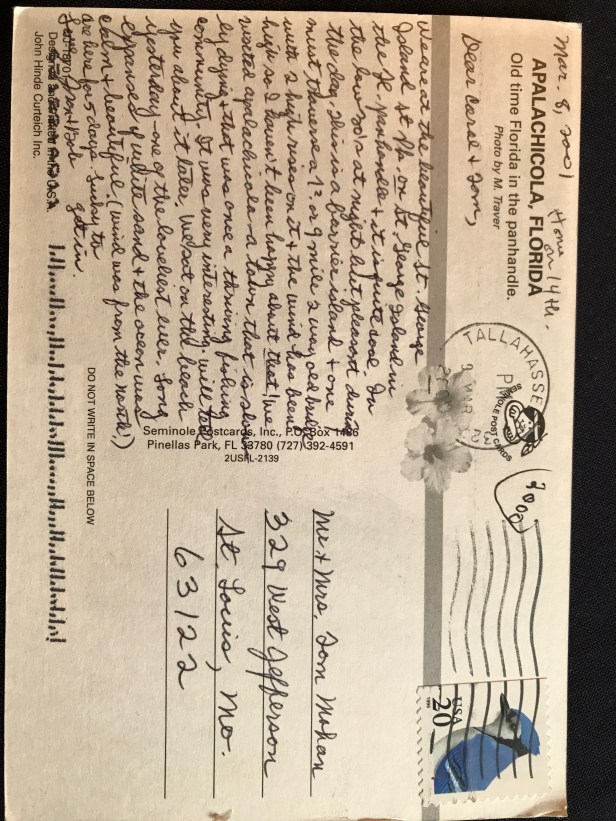 Mar. 8, 2001
Home on 14th.
APALACHICOLA, FLORIDA
Old time Florida in the panhandle.
Photo by M. Traver
Dear Carol & Tom,
We are at the beautiful St. George
Island St. Pk. on St. George Island in
the Fl. panhandle & it is quite cool. In
the low 50's at night but pleasant during
the day. This is a barrier island & one
must traverse a 1? or 9 mile 2 way old bridge
with 2 high rises on it & the wind has been
high so I haven't been happy about that! We
visited Apalachicola - a town that is slow
ly dying & that was once a thriving fishing
community. It was very interesting. Will tell
you about it later. We sat on the beach
yesterday - one of the loveliest ever. Long
expanses of white sand & the ocean was
calm & beautiful. (Wind was from the north!)
are here for 5 days. Lucky to
get in.
Love,
SUJ-1870
John Hinde Curteich Inc.
Seminole Postcards, Inc., P.O. Box 1486
Pinellas Park, FL 33780 (727) 392-4591
2USFL-2139
DO NOT WRITE IN SPACE BELOW
TALLAHASSEE
PM
9 MAR
POST CARDS
USA
20
Mr & Mrs. Tom Mohan
329 West Jefferson
St. Louis, Mo.
63122